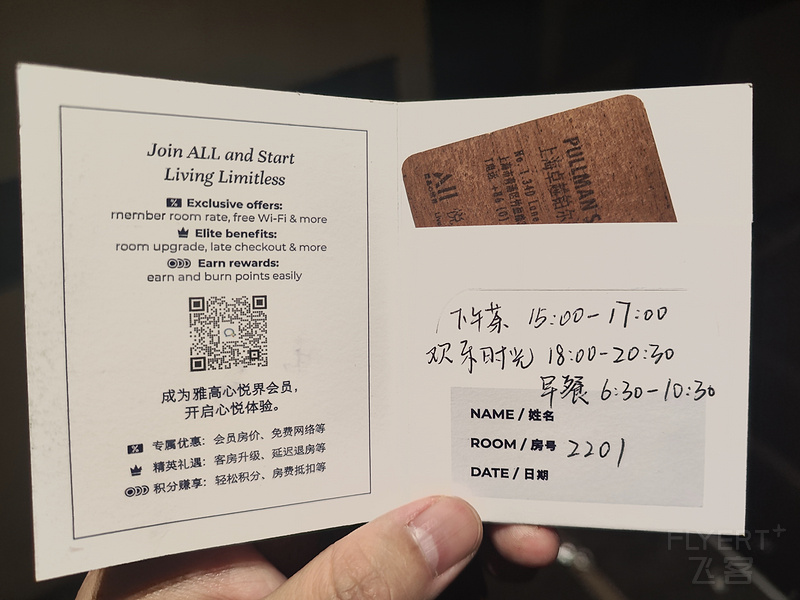 Join ALL and Start
Living Limitless
Exclusive offers:
member room rate, free Wi-Fi & more
Elite benefits:
room upgrade, late checkout & more
Earn rewards:
earn and burn points easily
成为雅高心悦界会员，
开启心悦体验。
专属优惠：会员房价、免费网络等
精英礼遇：客房升级、延迟退房等
积分赚享：轻松积分、房费抵扣等
PULLMAN S
上海卓越铂尔
No. 1 340 Lane
ALL
下午茶 15:00-17:00
欢乐时光 18:00-20:30
早餐 6:30-10:30
NAME / 姓名
ROOM / 房号 2201
DATE / 日期
FLYERT+
飞客